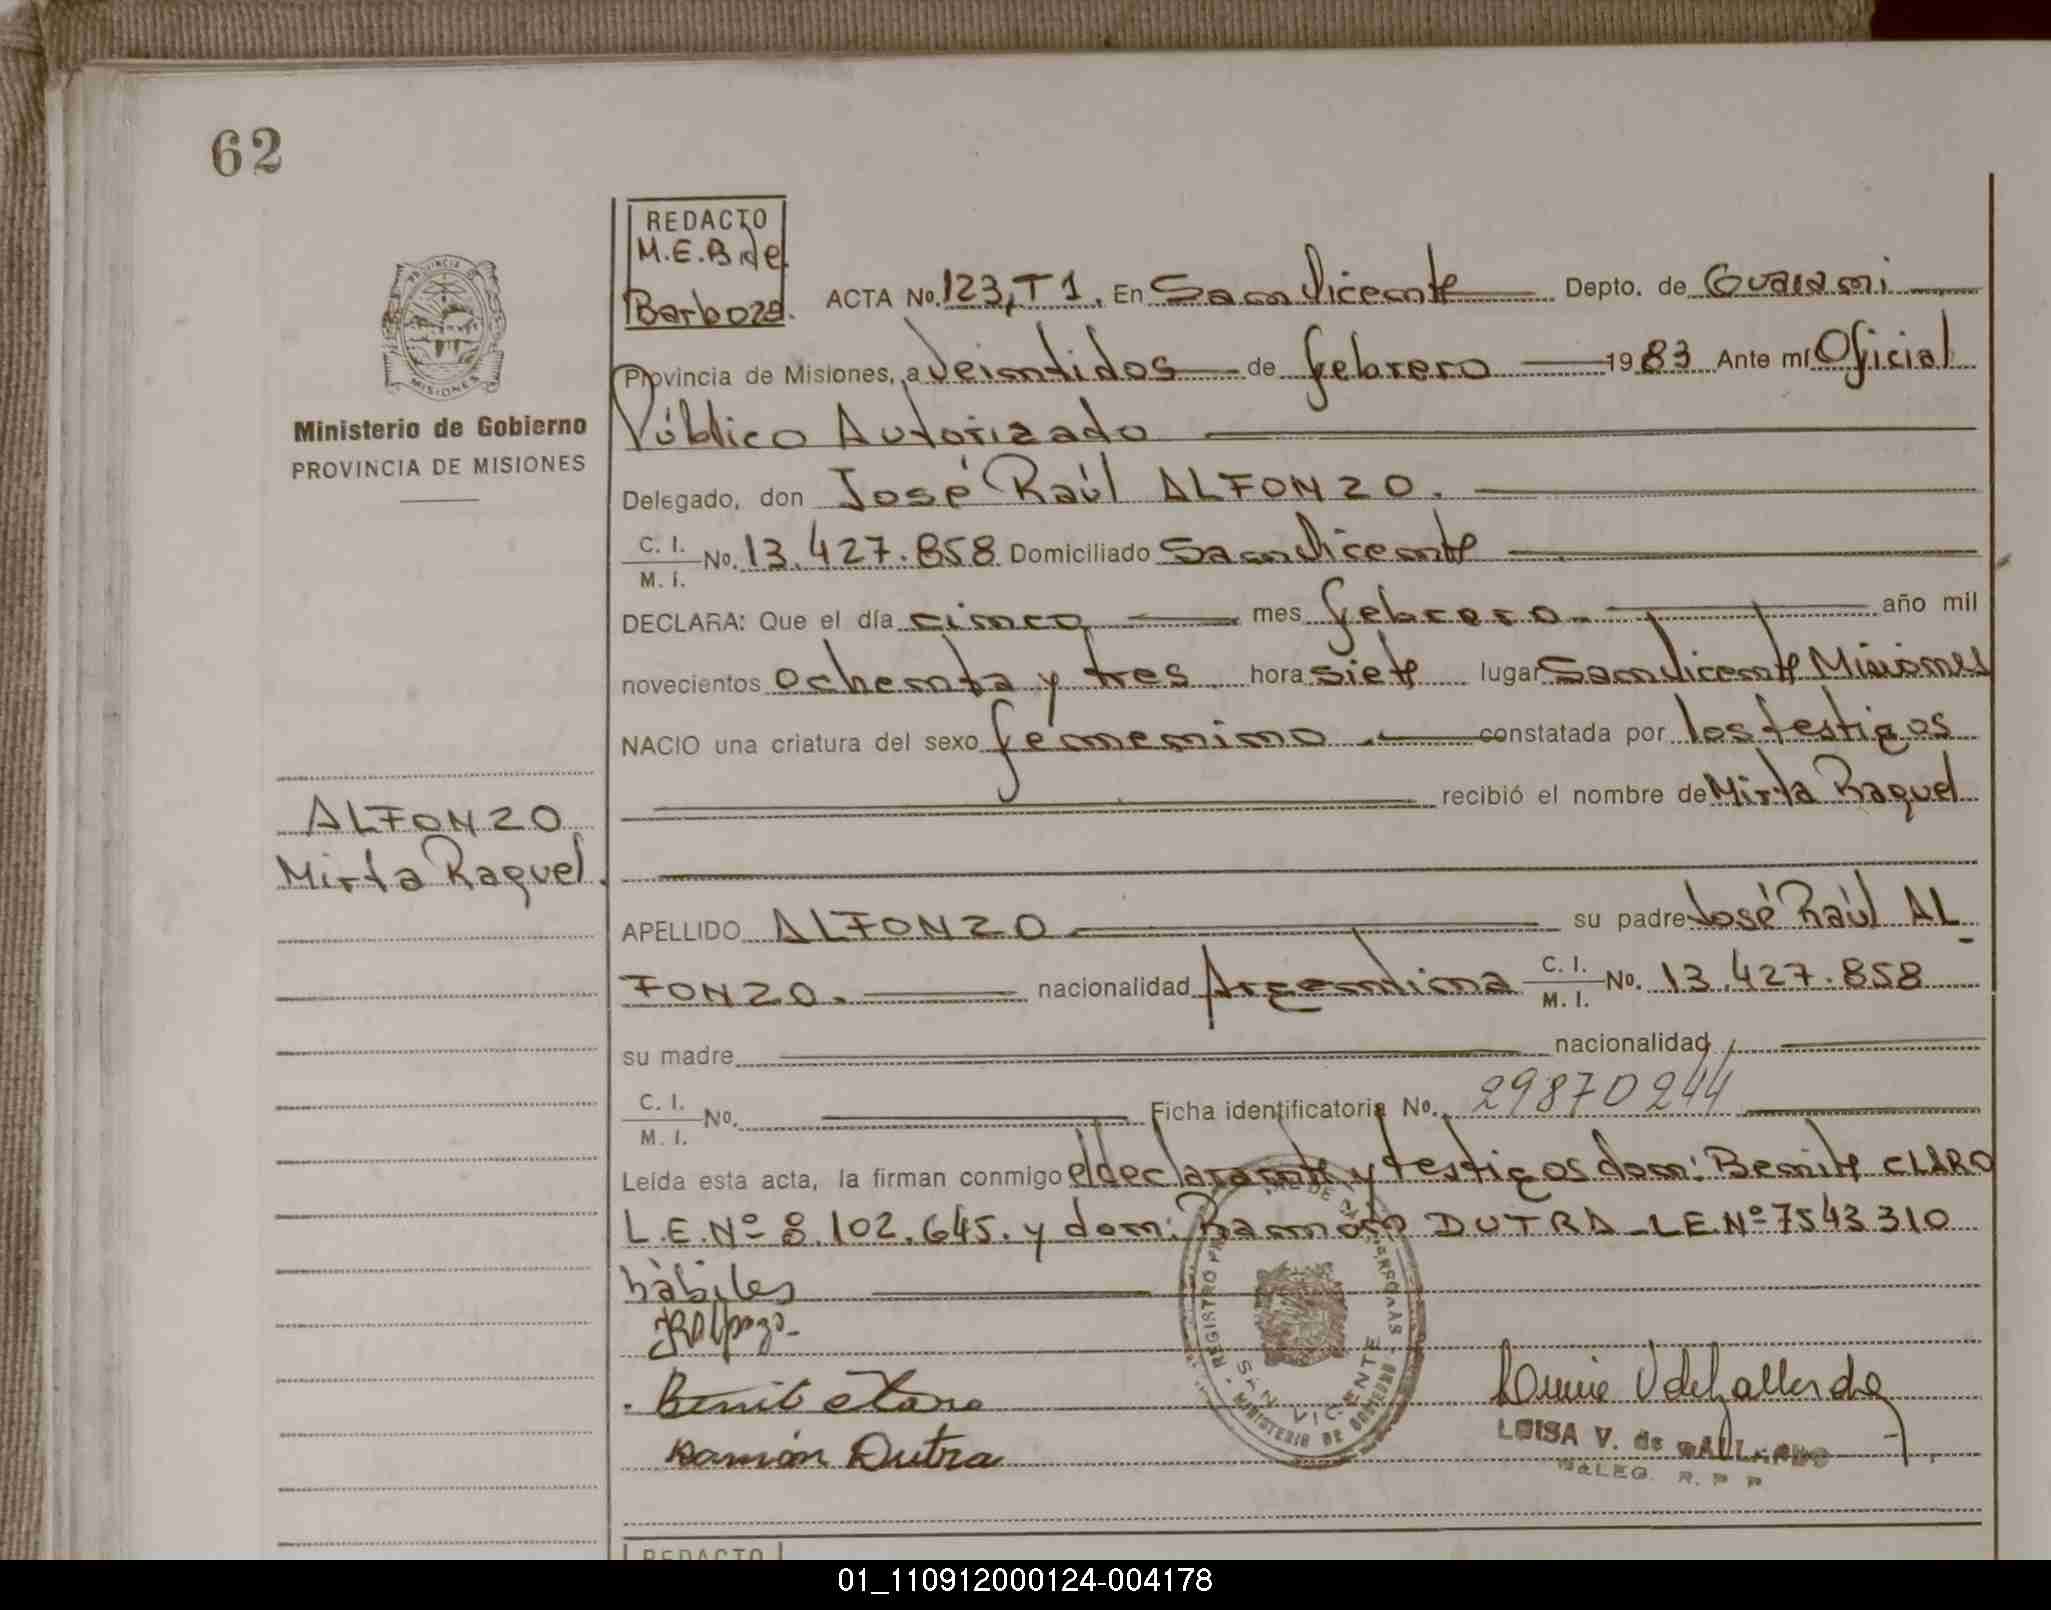 62
REDACTO
M.E.B. de
Barboza.
PROVINCIA DE
MISIONES
Ministerio de Gobierno
PROVINCIA DE MISIONES
ACTA No. 123, T 1. En San Vicente Depto. de Guarani
Provincia de Misiones, a Veintidos de febrero 1983 Ante mí Oficial
Público Autorizado
Delegado, don José Raúl ALFONZO.
C. I. / M. I. No. 13.427.858 Domiciliado San Vicente
DECLARA: Que el día cinco mes febrero año mil
novecientos ochenta y tres hora siete lugar San Vicente Misiones
NACIO una criatura del sexo femenino constatada por los testigos
recibió el nombre de Mirta Raquel
ALFONZO
Mirta Raquel.
APELLIDO ALFONZO su padre José Raúl AL-
FONZO. nacionalidad Argentina C. I. / M. I. No. 13.427.858
su madre nacionalidad
C. I. / M. I. No. Ficha identificatoria No. 29870244
Leída esta acta, la firman conmigo el declarante y testigos don: Benite CLARO
L.E.Nº 8.102.645. y don: Ramón DUTRA - LE.Nº 7543310
hàbiles
Benit Claro
Ramón Dutra
REGISTRO
DE LAS PERSONAS
SAN VICENTE
MINISTERIO DE GOBIERNO
LUISA V. de GALLARDO
DELEG. R. P P
REDACTO
01_110912000124-004178